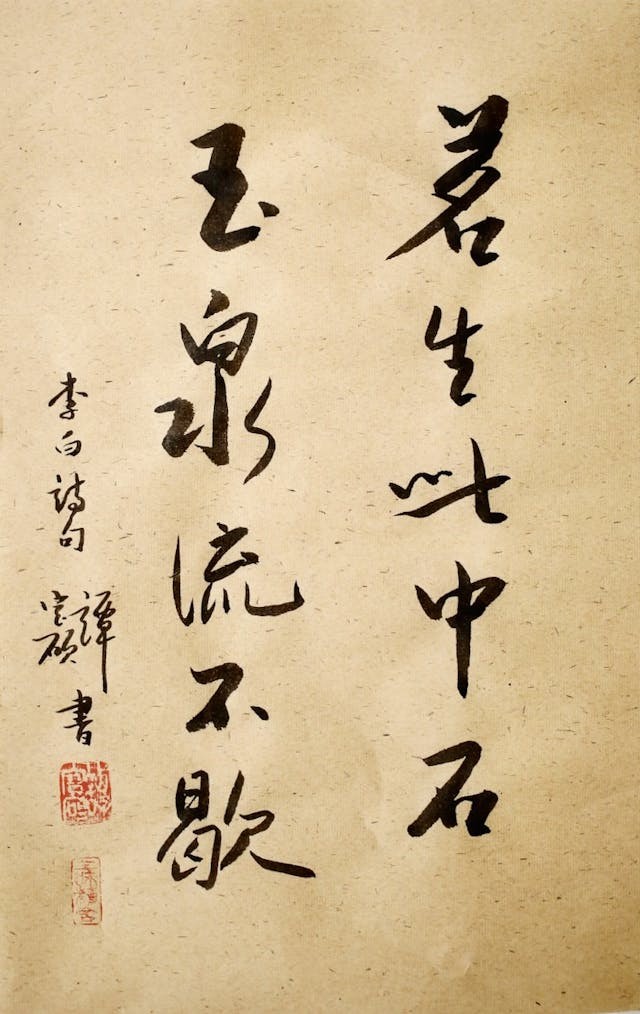 茗生此中石
玉泉流不歇
李白詩句 譚寶碩書